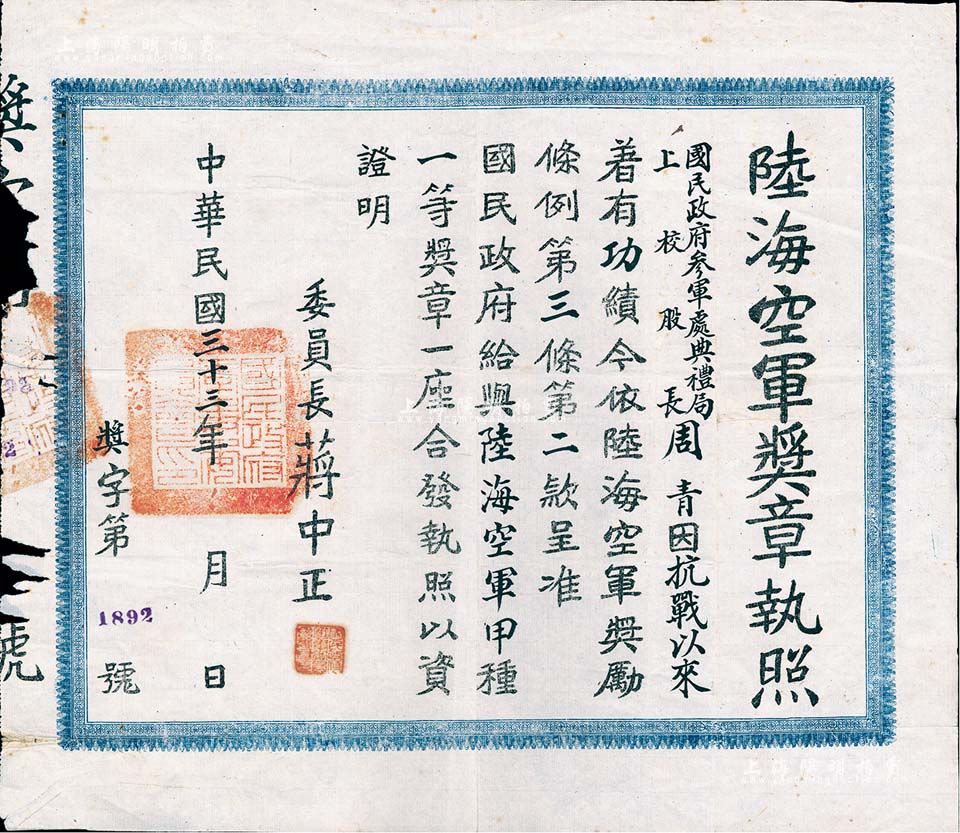 陸海空軍獎章執照
國民政府參軍處典禮局
上校股長周 青因抗戰以來
著有功績今依陸海空軍獎勵
條例第三條第二款呈准
國民政府給與陸海空軍甲種
一等獎章一座合發執照以資
證明
委員長蔣中正
中華民國三十三年 月 日
獎字第 1892 號
獎字第
號
上海陽明拍賣